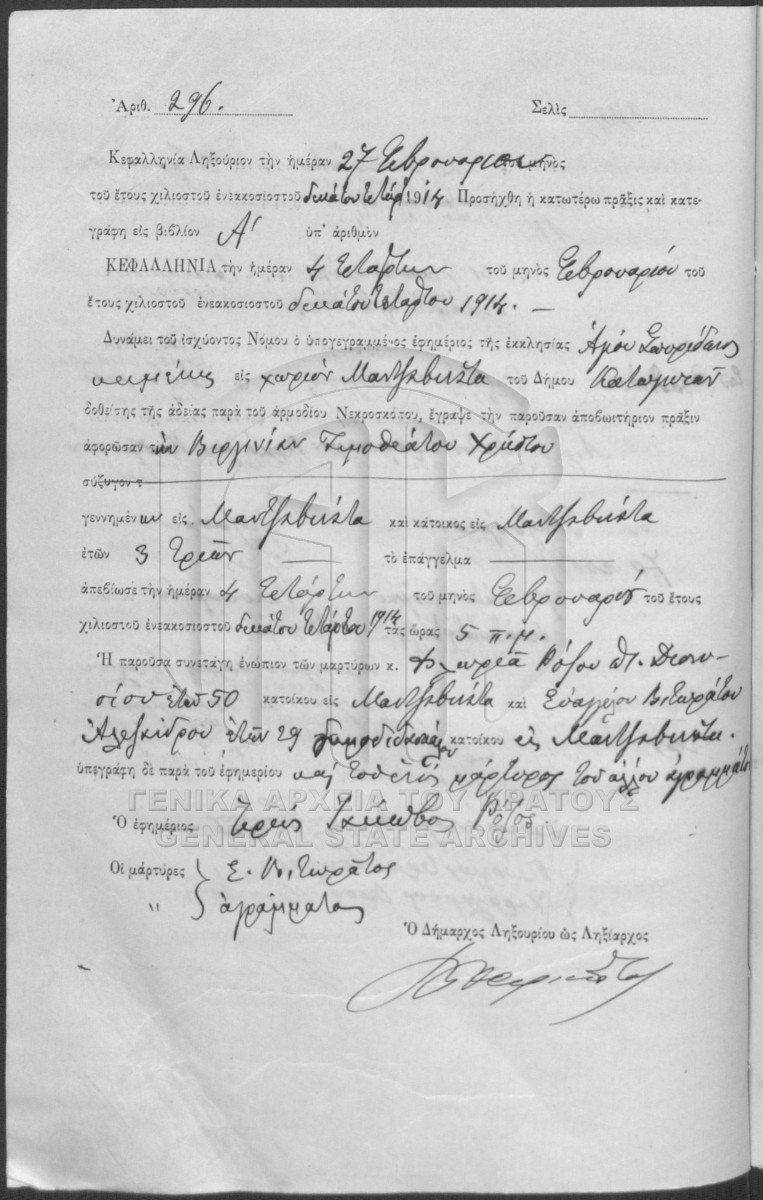 Ἀριθ. 296. Σελὶς
Κεφαλληνία Ληξούριον τὴν ἡμέραν 27 Φεβρουαρίου μηνὸς
τοῦ ἔτους χιλιοστοῦ ἐνεακοσιοστοῦ δεκάτου τετάρ 1914 Προσήχθη ἡ κατωτέρω πρᾶξις καὶ κατε-
γράφη εἰς βιβλίον Α' ὑπ' ἀριθμὸν
ΚΕΦΑΛΛΗΝΙΑ τὴν ἡμέραν 4 τετάρτην τοῦ μηνὸς Φεβρουαρίου τοῦ
ἔτους χιλιοστοῦ ἐνεακοσιοστοῦ δεκάτου τετάρτου 1914. —
Δυνάμει τοῦ ἰσχύοντος Νόμου ὁ ὑπογεγραμμένος ἐφημέριος τῆς ἐκκλησίας Ἁγίου Σπυρίδωνος
κειμένης εἰς χωρίον Μαντζαβινάτα τοῦ Δήμου
δοθείσης τῆς ἀδείας παρὰ τοῦ ἁρμοδίου Νεκροσκόπου, ἔγραψε τὴν παροῦσαν ἀποβιωτήριον πρᾶξιν
ἀφορῶσαν τὴν Βιργινίαν Τιμοθεάτου Χρήστου
σύζυγον τ
γεννημένην εἰς Μαντζαβινάτα καὶ κάτοικος εἰς Μαντζαβινάτα
ἐτῶν 3 τριῶν — τὸ ἐπάγγελμα —
ἀπεβίωσε τὴν ἡμέραν 4 τετάρτην τοῦ μηνὸς Φεβρουαρίου τοῦ ἔτους
χιλιοστοῦ ἐνεακοσιοστοῦ δεκάτου τετάρτου 1914 τὰς ὥρας 5 π.μ.
Ἡ παροῦσα συνετάγη ἐνώπιον τῶν μαρτύρων κ. Ρόζου Διονυ-
σίου ἐτῶν 50 κατοίκου εἰς Μαντζαβινάτα καὶ Βιτωράτου
Ἀλεξάνδρου ἐτῶν 29 δημοδιδασκάλου κατοίκου εἰς Μαντζαβινάτα.
ὑπεγράφη δὲ παρὰ τοῦ ἐφημερίου καὶ τοῦ ἑνός μάρτυρος τοῦ ἄλλου ἀγραμμάτου
ΓΕΝΙΚΑ ΑΡΧΕΙΑ ΤΟΥ ΚΡΑΤΟΥΣ
Ὁ ἐφημέριος Ἱερεὺς Ἰάκωβος Ρόζος
GENERAL STATE ARCHIVES
Οἱ μάρτυρες Ε. Βιτωράτος
" ἀγράμματος
Ὁ Δήμαρχος Ληξουρίου ὡς Ληξίαρχος